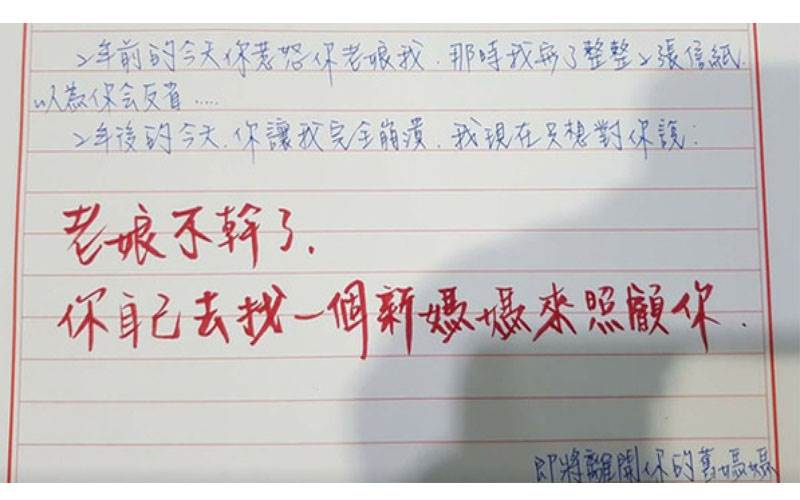 2年前的今天你惹怒你老娘我.那時我寫了整整2張信紙.
以為你会反省.....
2年後的今天.你讓我完全崩潰.我現在只想對你說:
老娘不幹了.
你自己去找一個新媽媽來照顧你.
即將離開你的舊媽媽